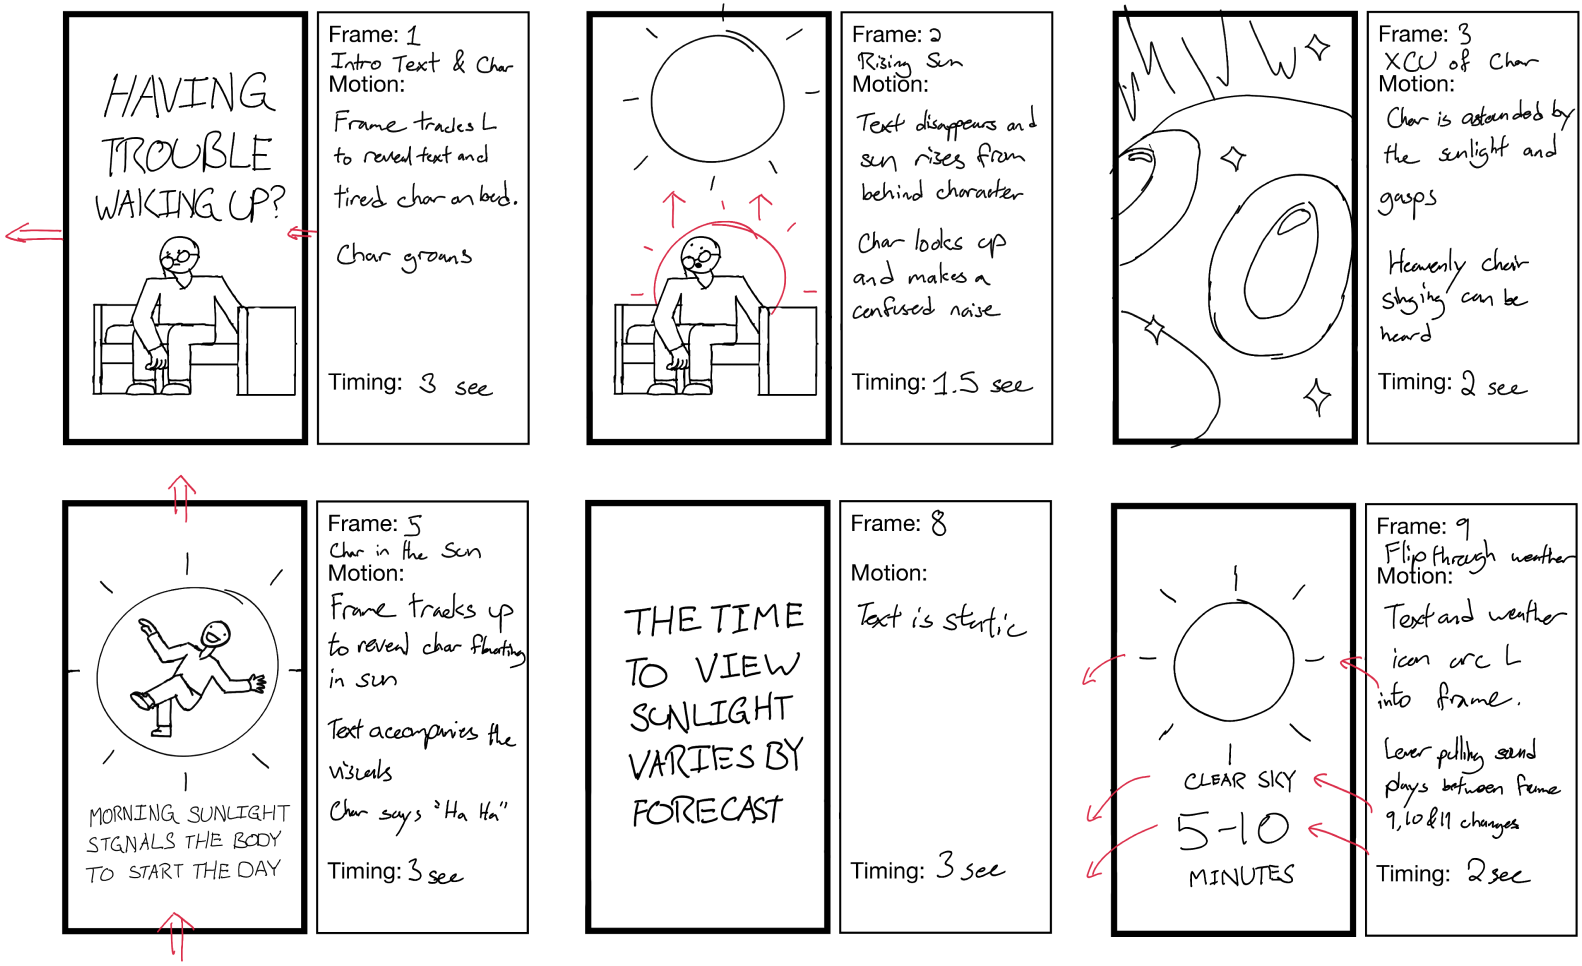 HAVING
TROUBLE
WAKING UP?
Frame: 1
Intro Text & Char
Motion:
Frame tracks L
to reveal text and
tired char on bed.
Char groans
Timing: 3 sec
Frame: 2
Rising Sun
Motion:
Text disappears and
sun rises from
behind character
Char looks up
and makes a
confused noise
Timing: 1.5 sec
Frame: 3
XCU of Char
Motion:
Char is astounded by
the sunlight and
gasps
Heavenly choir
singing can be
heard
Timing: 2 sec
MORNING SUNLIGHT
SIGNALS THE BODY
TO START THE DAY
Frame: 5
Char in the Sun
Motion:
Frame tracks up
to reveal char floating
in sun
Text accompanies the
visuals
Char says "Ha Ha"
Timing: 3 sec
THE TIME
TO VIEW
SUNLIGHT
VARIES BY
FORECAST
Frame: 8
Motion:
Text is static
Timing: 3 sec
CLEAR SKY
5-10
MINUTES
Frame: 9
Flip through weather
Motion:
Text and weather
icon arc L
into frame.
Lever pulling sound
plays between frame
9, 10 & 11 changes
Timing: 2 sec